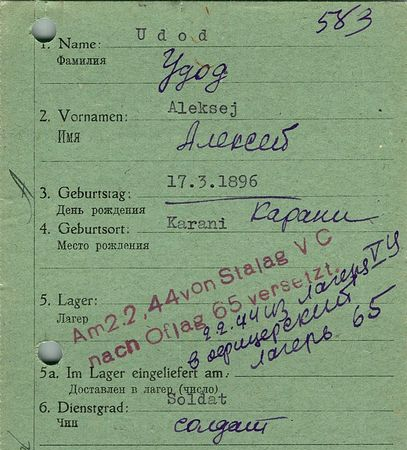 583
Udod
1. Name:
Фамилия
Удод
Aleksej
2. Vornamen:
Имя
Алексей
17.3.1896
3. Geburtstag:
День рождения
Karani Карани
4. Geburtsort:
Место рождения
5. Lager:
Лагерь
Am 2.2.44 von Stalag V C
nach Oflag 65 versetzt.
2.2.44 из лагеря V Ц
в офицерский
лагерь 65
5a. Im Lager eingeliefert am:
Доставлен в лагерь (число)
Soldat
6. Dienstgrad:
Чин
солдат